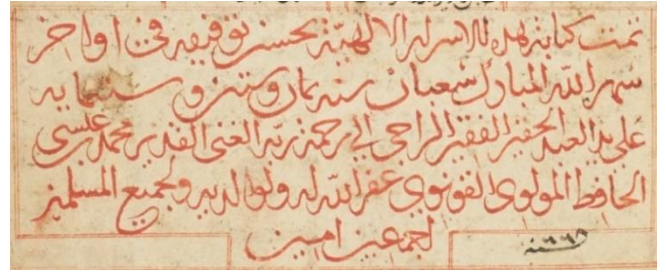 تمت كتابة هذه الاسرار الالهية بحسن توفيقه في اواخر
شهر الله المبارك شعبان سنة ثمان وستين وستمايه
على يد العبد الحقير الفقير الراجي الى رحمة ربه الغني القدير محمد بن عيسى
الحافظ المولوي القونوي غفر الله له ولوالديه ولجميع المسلمين
اجمعين امين
سنة ٦٦٨